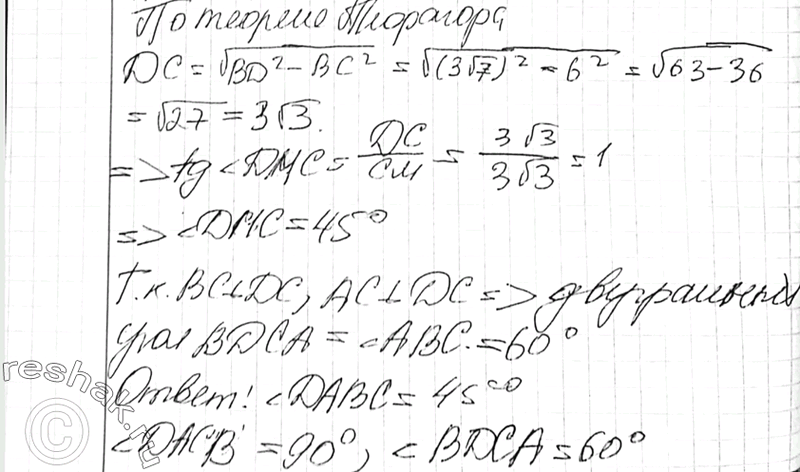 По теореме Пифагора
DC = √BD² - BC² = √(3√7)² - 6² = √63-36
= √27 = 3√3.
=> tg <DMC = DC/CM = 3√3/3√3 = 1
=> <DMC = 45°
т.к. BC⊥DC, AC⊥DC => двугранный
угол BDCA = <ABC. = 60°
Ответ! <DABC = 45°
<DACB = 90°, < BDCA = 60°
reshak.ru
©